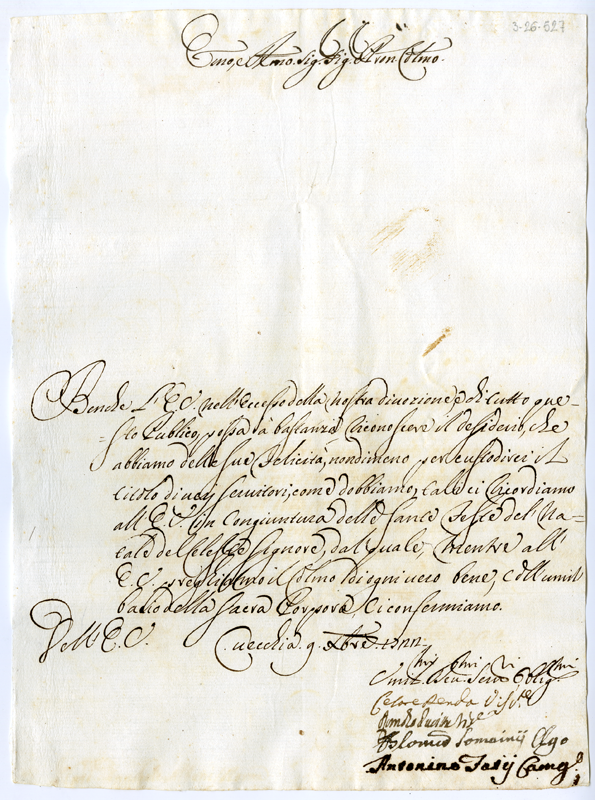 3-26-627
Emo, e Rmo. Sig. Sig. Pron Colmo.
Benche L'E.V. nell'Eccesso della nostra divozione, e di tutto que=
=sto Publico, possa à bastanza riconoscere il desiderio, che
abbiamo delle sue felicità, nondimeno per custodirci il
titolo di veri servitori, come dobbiamo, tali ci ricordiamo
all'E.V. in congiuntura delle sante Feste del Na=
tale del Celeste Signore, dal quale, mentre all'
E.V. preghiamo il colmo d'ogni vero bene, coll'umil
bacio della Sacra Porpora ci confermiamo.
Dell'E.V. 9. Xbre.
Servi Oblig
Cesare
Antonino Camg.